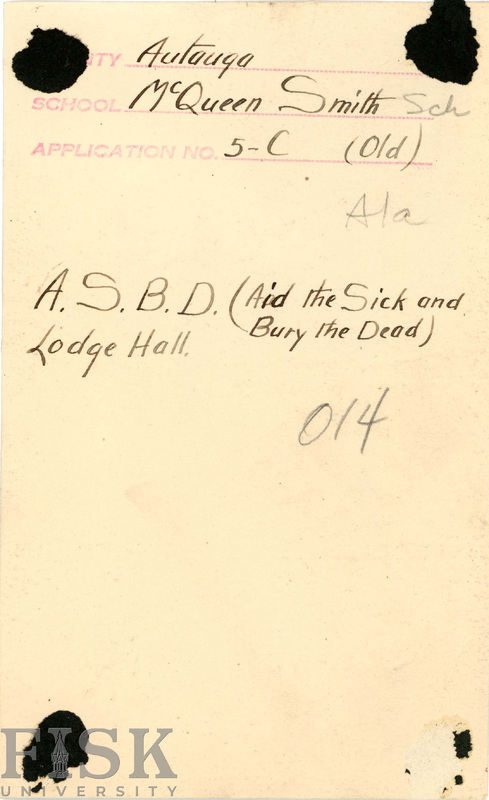 NTY Autauga
SCHOOL McQueen Smith Sch
APPLICATION NO. 5-C (Old)
Ala
A. S. B. D. (Aid the Sick and
Bury the Dead)
Lodge Hall.
014
FISK
UNIVERSITY